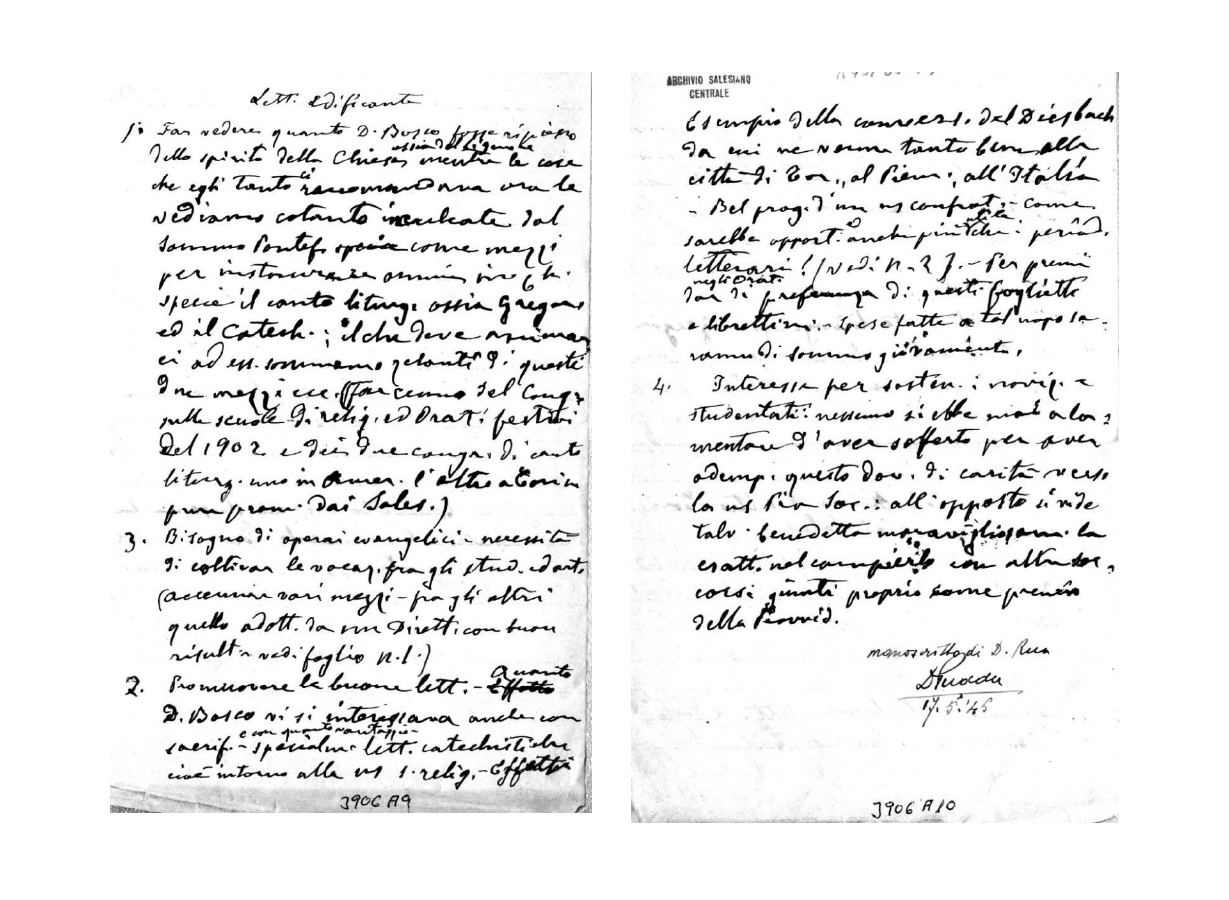 Lett. edificante
1° Far vedere quanto D. Bosco fosse ripieno
dello spirito della Chiesa, ossia del Signore mentre le cose
che egli tanto ci raccomandava ora le
vediamo cotanto inculcate dal
Sommo Pontef. specie come mezzi
per instaurare omnia in Ch.
specie il canto liturg. ossia Gregor.
ed il Catech.; il che deve animar
ci ad ess. sommam. zelanti di questi
due mezzi ecc. (far cenno del Cong.
sulle scuole di relig. ed Orat. festivi
del 1902 e dei due congr. di canto
liturg. uno in Amer. l'altro a Torin
pure prom. dai Sales.)
3. Bisogno di operai evangelici - necessità
di coltivar le vocaz. fra gli stud. ed art.
(accennar vari mezzi - fra gli altri
quello adott. da un Dirett. con buon
risult. vedi foglio n. 1.)
2. Promuovere le buone lett. - Effetto Quanto
D. Bosco vi si interessava anche con
sacrif. - e con quanto vantaggio - specialm. lett. catechistiche
cioè intorno alla ns s. relig. - Effetti
3906 A9
ARCHIVIO SALESIANO
CENTRALE
Esempio della convers. del Diesbach
da cui ne venne tanto bene alla
città di Tor., al Piem., all'Italia
- Bel prog. d'un ns confrat. - come
sarebbe opport. anche più period.
letterari! (vedi n. 2). - Per premi
negli Orat.
dar di preferenza di questi foglietti
e librettini. - Spese fatte a tal uopo sa-
ranno di sommo giovamento.
4. Interesse per sosten. i noviz. e
studentati: nessuno si ebbe mai a la-
mentare d'aver sofferto per aver
ademp. questo dov. di carità verso
la ns Pia Soc.: all'opposto si vide
talv. benedetta maravigliosam. la
esatt. nel compierlo con altri soc-
corsi giunti proprio come premio
della Provvid.
manoscritto di D. Rua
17.5.45
3906 A10